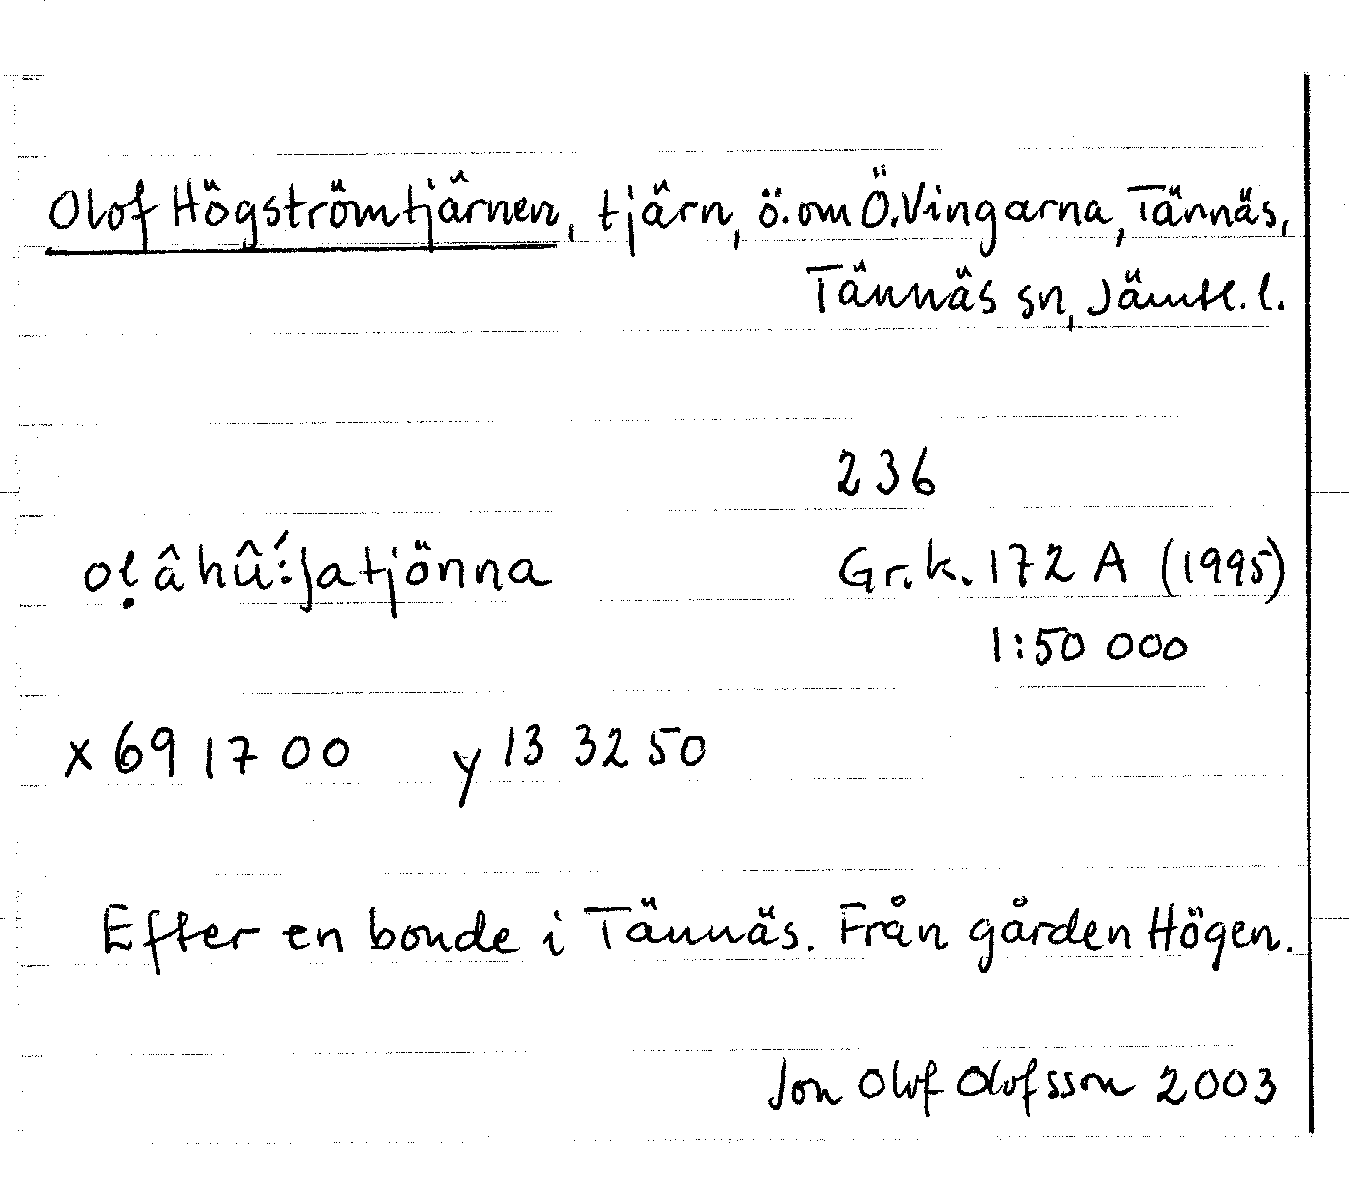 Olof Högströmtjärnen, tjärn, ö. om Ö. Vingarna, Tännäs,
Tännäs sn, Jämtl. l.
236
oḷâhû´:ʃatjönna Gr.k. 172 A (1995)
1:50 000
x 69 17 00 y 13 32 50
Efter en bonde i Tännäs. Från gården Högen.
Jon Olof Olofsson 2003